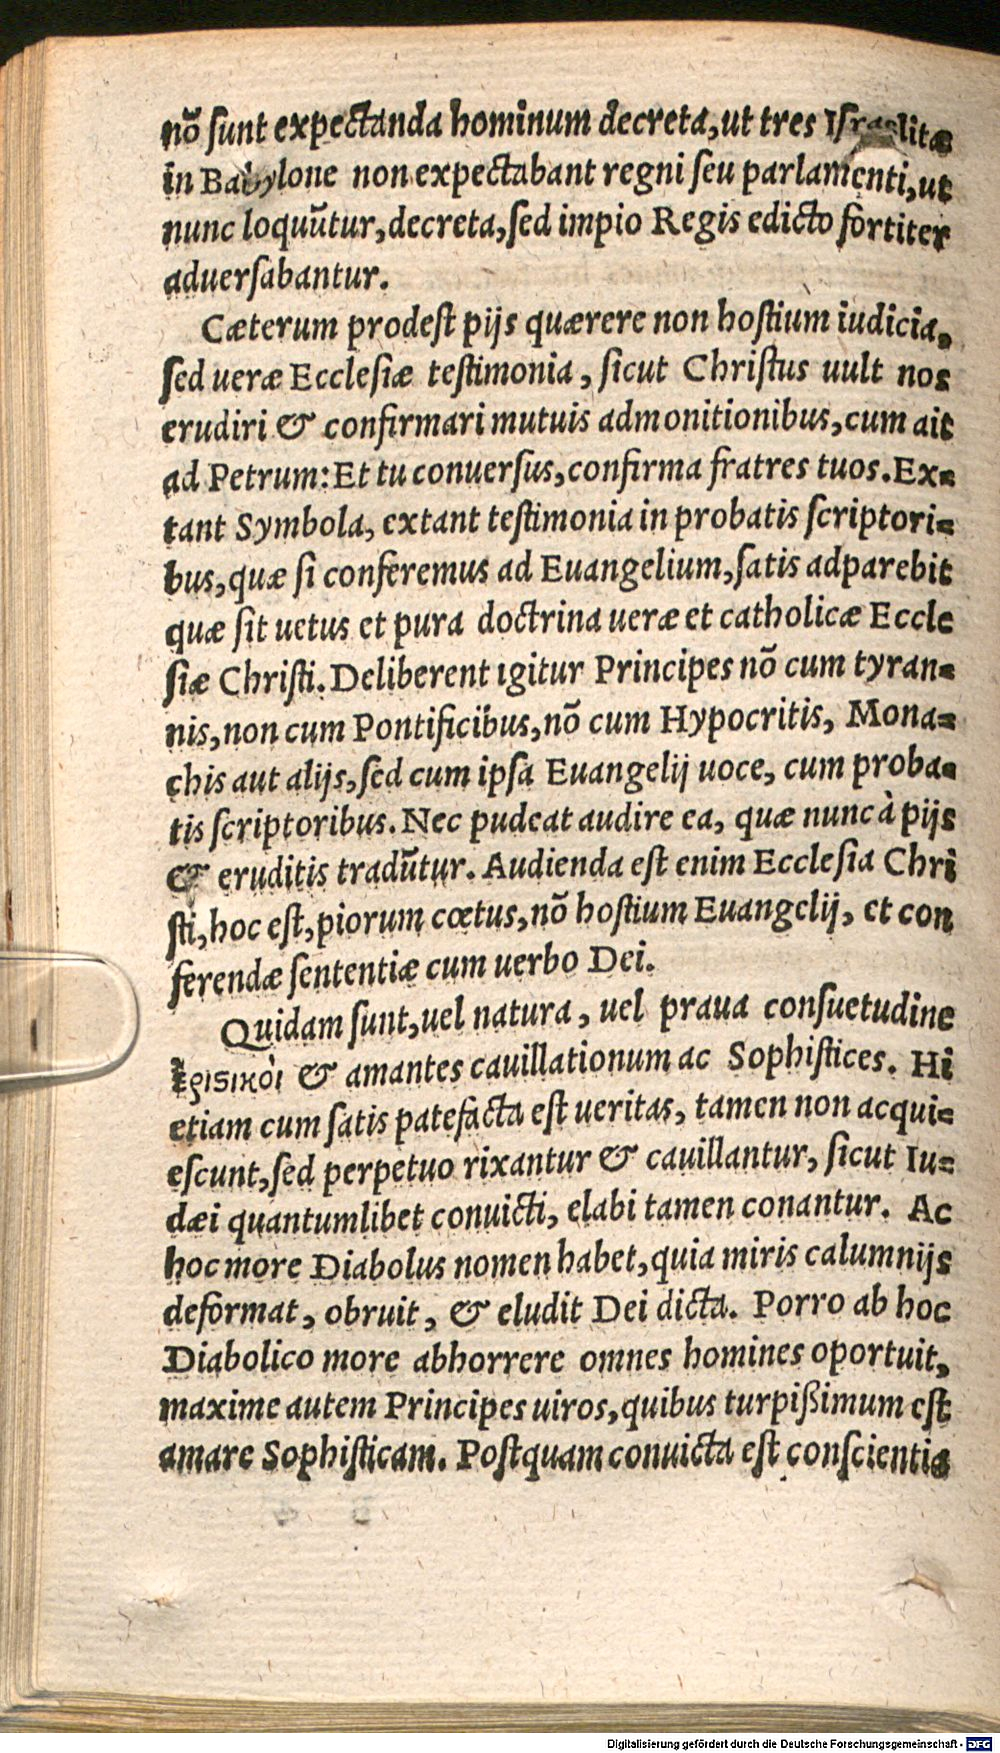 nō ſunt expectanda hominum decreta,ut tres Iſraelitæ
in Babylone non expectabant regni ſeu parlamenti,ut
nunc loquūtur,decreta,ſed impio Regis edicto fortiter
aduerſabantur.
Cæterum prodeſt pijs quærere non hoſtium iudicia,
ſed ueræ Eccleſiæ teſtimonia, ſicut Chriſtus uult nos
erudiri & confirmari mutuis admonitionibus,cum ait
ad Petrum: Et tu conuerſus,confirma fratres tuos.Ex=
tant Symbola, extant teſtimonia in probatis ſcriptori=
bus,quæ ſi conferemus ad Euangelium,ſatis adparebit
quæ ſit uetus et pura doctrina ueræ et catholicæ Eccle
ſiæ Chriſti. Deliberent igitur Principes nō cum tyran=
nis,non cum Pontificibus,nō cum Hypocritis, Mona=
chis aut alijs,ſed cum ipſa Euangelij uoce, cum proba=
tis ſcriptoribus. Nec pudeat audire ea, quæ nunc à pijs
& eruditis tradūtur. Audienda eſt enim Eccleſia Chri
ſti,hoc eſt,piorum cœtus,nō hoſtium Euangelij, et con
ferendæ ſententiæ cum uerbo Dei.
Quidam ſunt,uel natura, uel praua conſuetudine
ἐριςικὸι & amantes cauillationum ac Sophiſtices. Hi
etiam cum ſatis patefacta eſt ueritas, tamen non acqui=
eſcunt,ſed perpetuo rixantur & cauillantur, ſicut Iu=
dæi quantumlibet conuicti, elabi tamen conantur. Ac
hoc more Diabolus nomen habet,quia miris calumnijs
deformat, obruit, & eludit Dei dicta. Porro ab hoc
Diabolico more abhorrere omnes homines oportuit,
maxime autem Principes uiros,quibus turpißimum eſt
amare Sophiſticam. Poſtquam conuicta eſt conſcientia
Digitalisierung gefördert durch die Deutsche Forschungsgemeinschaft - DFG